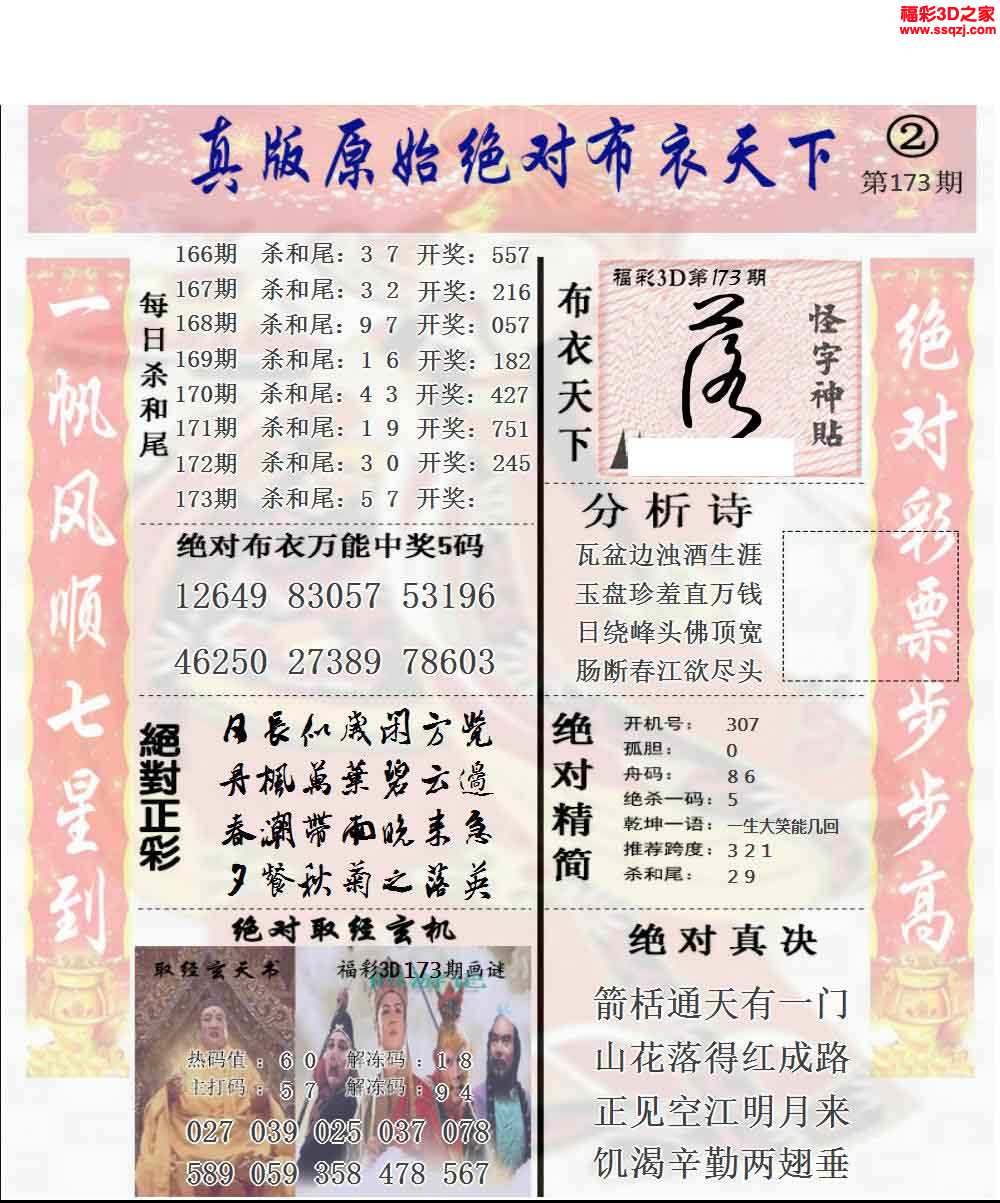 福彩3D之家
www.ssqzj.com
真版原始绝对布衣天下
②
第173期
一帆风顺七星到
每日杀和尾
166期 杀和尾：3 7 开奖：557
167期 杀和尾：3 2 开奖：216
168期 杀和尾：9 7 开奖：057
169期 杀和尾：1 6 开奖：182
170期 杀和尾：4 3 开奖：427
171期 杀和尾：1 9 开奖：751
172期 杀和尾：3 0 开奖：245
173期 杀和尾：5 7 开奖：
绝对布衣万能中奖5码
12649 83057 53196
46250 27389 78603
絕對正彩
日長似歲閑方覺
丹楓萬葉碧云邊
春潮帶雨晚来急
夕餐秋菊之落英
绝对取经玄机
取经玄天书
福彩3D173期画谜
热码值：6 0 解冻码：1 8
主打码：5 7 解冻码：9 4
027 039 025 037 078
589 059 358 478 567
布衣天下
福彩3D第173期
落
怪字神貼
分析诗
瓦盆边浊酒生涯
玉盘珍羞直万钱
日绕峰头佛顶宽
肠断春江欲尽头
绝对精简
开机号： 307
孤胆： 0
舟码： 8 6
绝杀一码：5
乾坤一语：一生大笑能几回
推荐跨度：3 2 1
杀和尾： 2 9
绝对真决
箭栝通天有一门
山花落得红成路
正见空江明月来
饥渴辛勤两翅垂
绝对彩票步步高